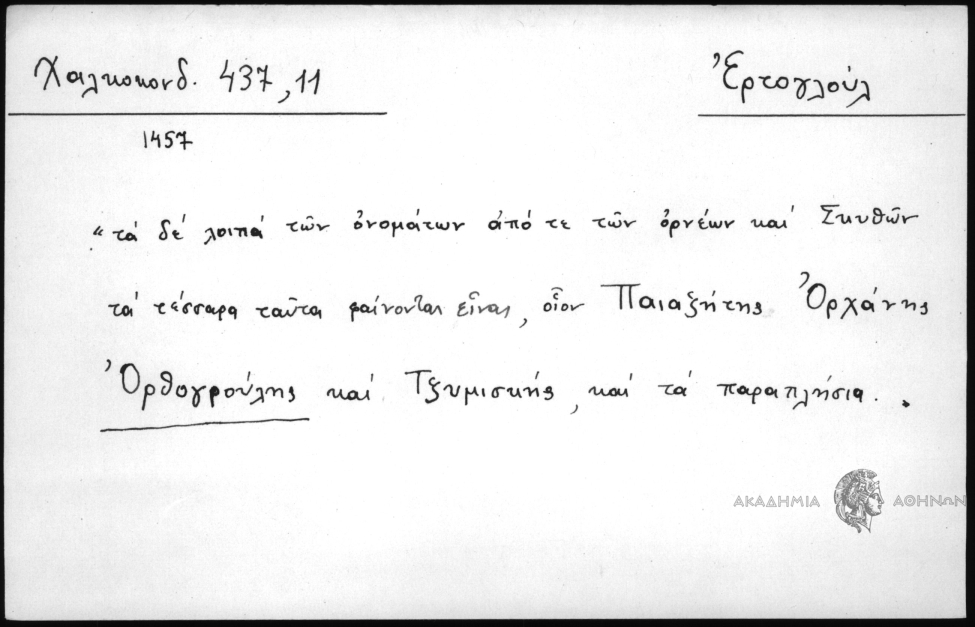 Χαλκοκονδ. 437,11
Ἐρτογλούλ
1457
"τά δέ λοιπά τῶν ὀνομάτων ἀπό τε τῶν ὀρνέων καί Σκυθῶν
τά τέσσαρα ταῦτα φαίνονται εἶναι, οἷον Παιαζήτης Ὀρχάνης
Ὀρθογρούλης καί Τζυμισκής, καί τά παραπλήσια..
ΑΚΑΔΗΜΙΑ ΑΘΗΝΩΝ